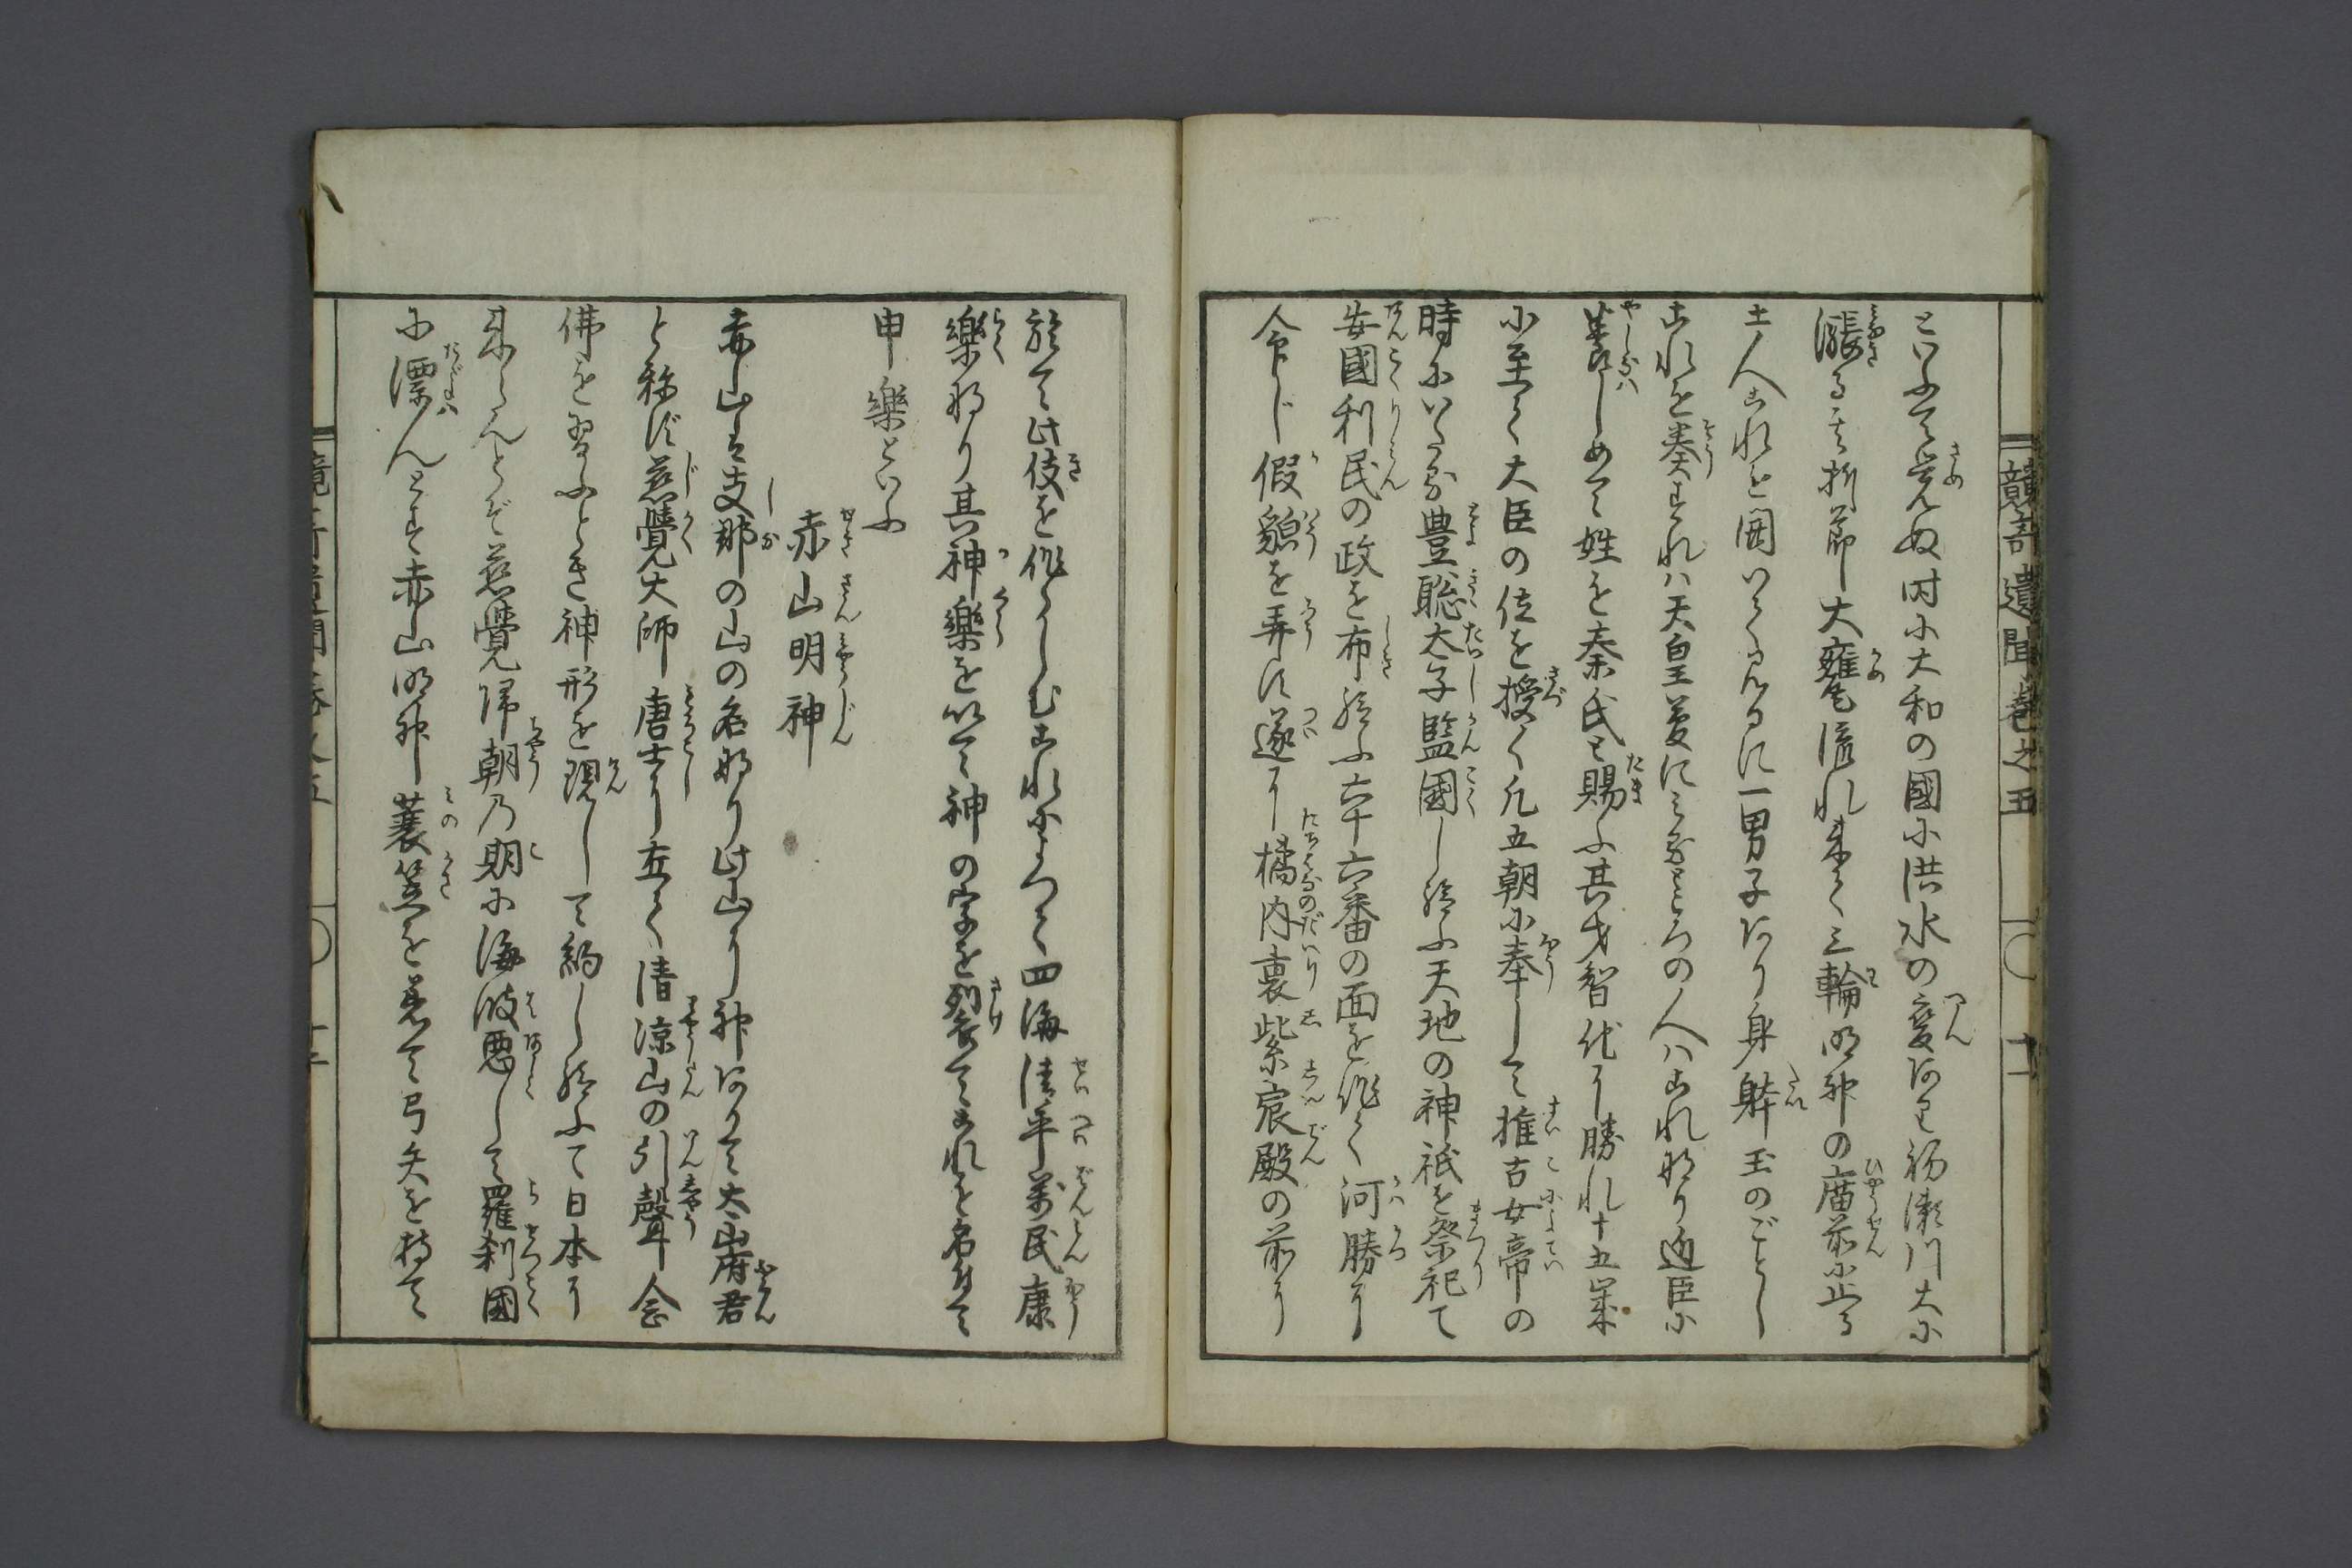 競奇遺聞巻之五　〇　十一
といふて覚ぬ時に大和の國に洪水の変ありて初瀬川大に
漲る其折節大甕流れ来て三輪明神の廣前に止る
土人これを開いて見るに一男子あり身躰玉のごとし
これを奏すれハ天皇夢にミるところの人ハこれ也り近臣に
養しめて姓を秦氏と賜ふ其才智代に勝れ十五歳
に至て大臣の位を授く凡五朝に奉して推古女帝の
時にいたる豊聡太子監國し給ふ天地の神祇を祭祀て
安國利民の政を布給ふ六十六番の面を作て河勝に
命じ假貌を弄に遂に橘内裏紫宸殿の前に
於て此伎を作さしむこれによつて四海清平萬民康
樂也り其神樂を以て神の字を列去てこれを名付て
申樂といふ
赤山明神
赤山は支那の山の名也り此山に神ありて太山府君
と称ず慈覺大師唐土に在て清凉山の引聲念
佛を習ふとき神形を現して約し給ふて日本に
来らんとぞ慈覺帰朝乃期に海波悪して羅刹國
に漂ハんとす赤山明神蓑笠を着て弓矢を持て